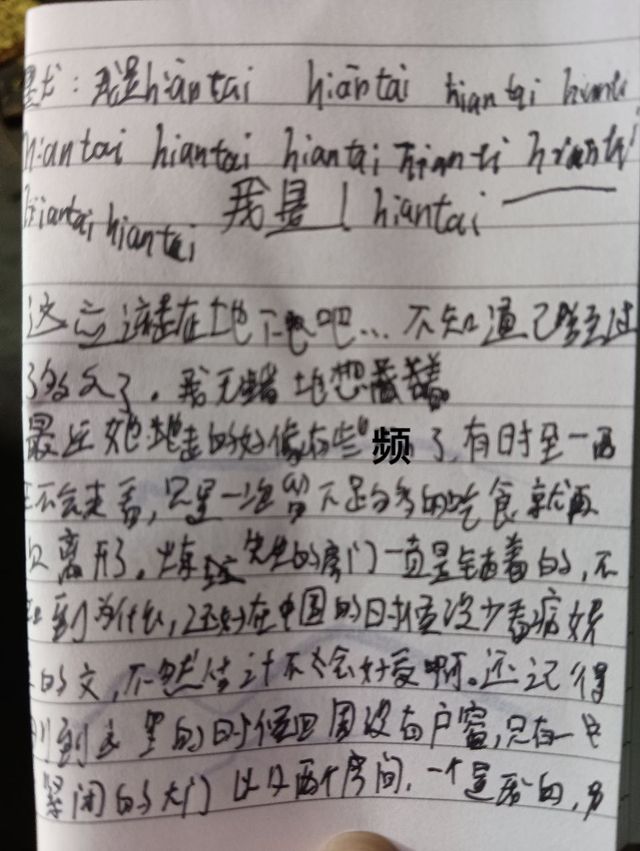 我是hiantai hiantai hiantai hianti
hiantai hiantai hiantai hianti hianti
hiantai hiantai 我是 hiantai
这应该是在地下吧...不知道已经过
了多久了，我无错地想着。
最近她走的好像有些频了，有时至一两
不会来看，只是一次留不足的吃食就再
离开了，先生的房门一直是锁着的，不
到为什么，还好在中国的日时没少看病娇
的文，不然估计不会好受啊。还记得
到这里的时候四周没有户窗，只有一
紧闭的大门以及两个房间，一个是我的，另